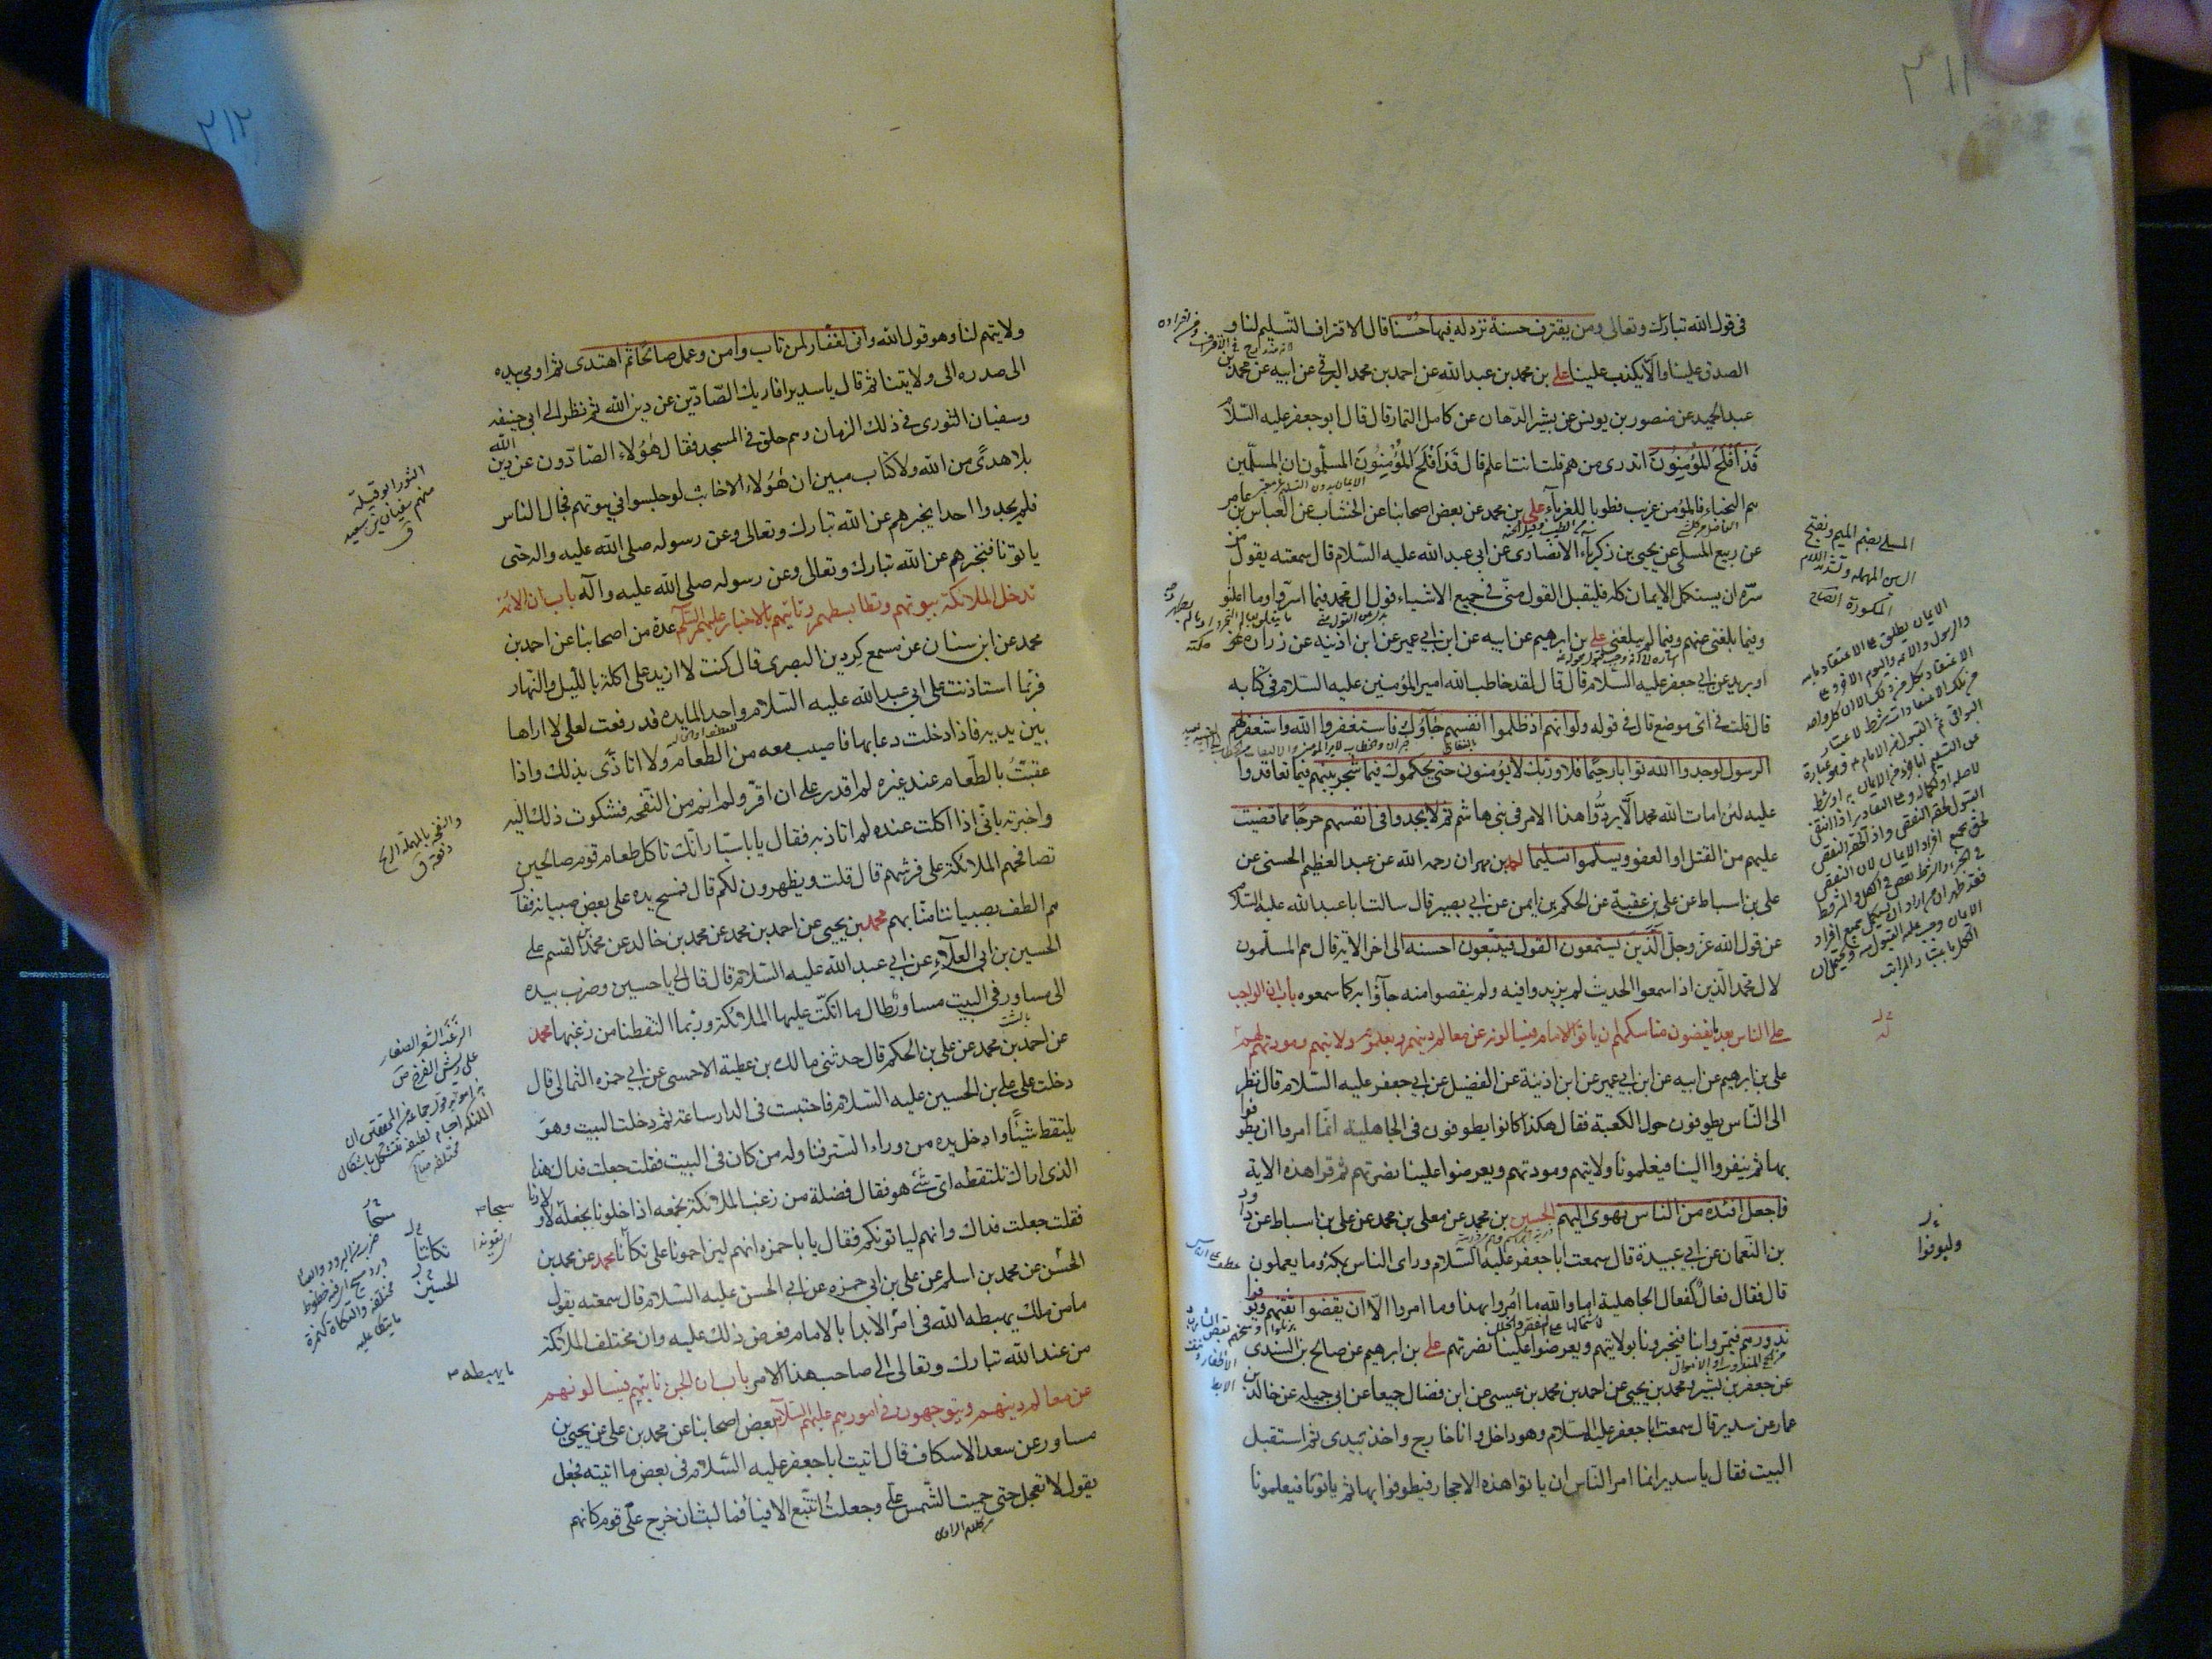 ٢١١
فى قول الله تبارك وتعالى ومن يقترف حسنة نزد له فيها حسنا قال الاقتراف التسليم لنا و
الصدق علينا والا يكذب علينا على بن محمد بن عبد الله عن احمد بن محمد البرقى عن ابيه عن محمد بن
عبد الحميد عن منصور بن يونس عن بشير الدهان عن كامل التمار قال قال ابو جعفر عليه السلام
قد افلح المؤمنون اتدرى من هم قلت انت اعلم قال قد افلح المؤمنون المسلمون ان المسلمين
هم النجباء فالمؤمن غريب فطوبا للغرباء على بن محمد عن بعض اصحابنا عن الخشاب عن العباس بن عامر
عن ربيع المسلى عن يحيى بن زكرياء الانصارى عن ابى عبد الله عليه السلام قال سمعته يقول من
سره ان يستكمل الايمان كله فليقبل القول منى فى جميع الاشياء قول ال محمد فيما اسروا وما اعلنوا
وفيما بلغنى عنهم وفيما لم يبلغنى على بن ابرهيم عن ابيه عن ابن ابى عمير عن ابن اذينه عن زراره
او بريد عن ابى جعفر عليه السلام قال قال لقد خاطب الله امير المؤمنين عليه السلام فى كتابه
قال قلت فى اى موضع قال فى قوله ولو انهم اذ ظلموا انفسهم جاؤك فاستغفروا الله واستغفر لهم
الرسول لوجدوا الله توابا رحيما فلا وربك لا يؤمنون حتى يحكموك فيما شجر بينهم فيما تعاقدوا
عليه لئن امات الله محمد الا يردوا هذا الامر فى بنى هاشم ثم لا يجدوا فى انفسهم حرجا مما قضيت
عليهم من القتل او العفو ويسلموا تسليما احمد بن مهران رحمه الله عن عبد العظيم الحسنى عن
على بن اسباط عن على بن عقبة عن الحكم بن ايمن عن ابى بصير قال سالت ابا عبد الله عليه السلام
عن قول الله عز وجل الذين يستمعون القول فيتبعون احسنه الى اخر الاية قال هم المسلمون
لال محمد الذين اذا سمعوا الحديث لم يزيدوا فيه ولم ينقصوا منه جاؤا به كما سمعوه باب ان الواجب
على الناس بعد ما يقضون مناسكهم ان ياتوا الامام فيسالونه عن معالم دينهم ويعلمونه ولايتهم ومودتهم لهم
على بن ابرهيم عن ابيه عن ابن ابى عمير عن ابن اذينة عن الفضيل عن ابى جعفر عليه السلام قال نظر
الى الناس يطوفون حول الكعبة فقال هكذا كانوا يطوفون فى الجاهلية انما امروا ان يطوفوا
بها ثم ينفروا الينا فيعلمونا ولايتهم ومودتهم ويعرضوا علينا نصرتهم ثم قرا هذه الاية
فاجعل افئدة من الناس تهوى اليهم الحسين بن محمد عن معلى بن محمد عن على بن اسباط عن داود
بن النعمان عن ابى عبيدة قال سمعت ابا جعفر عليه السلام وراى الناس بمكة وما يعملون
قال فقال فعال كفعال الجاهلية اما والله ما امروا بهذا وما امروا الا ان يقضوا تفثهم ويوفوا
نذورهم فيمروا بنا فيخبرونا بولايتهم ويعرضوا علينا نصرتهم على بن ابرهيم عن صالح بن السندى
عن جعفر بن بشير ومحمد بن يحيى عن احمد بن محمد بن عيسى عن ابن فضال جميعا عن ابى جميله عن خالد بن
عمار عن سدير قال سمعت ابا جعفر عليه السلام وهو داخل وانا خارج واخذ بيدى ثم استقبل
البيت فقال يا سدير انما امر الناس ان ياتوا هذه الاحجار فيطوفوا بها ثم ياتونا فيعلمونا
المسلى بضم الميم وفتح
السين المهمله وتشديد اللام
المكسورة
وليوفوا
٢١٢
ولايتهم لنا وهو قول الله وانى لغفار لمن تاب وامن وعمل صالحا ثم اهتدى ثم اومى بيده
الى صدره الى ولايتنا ثم قال يا سدير افاريك الصادين عن دين الله ثم نظر الى ابى حنيفه
وسفيان الثورى فى ذلك الزمان وهم حلق فى المسجد فقال هؤلاء الصادون عن دين الله
بلا هدى من الله ولا كتاب مبين ان هؤلاء الاخابث لو جلسوا فى بيوتهم فجال الناس
فلم يجدوا احدا يخبرهم عن الله تبارك وتعالى وعن رسوله صلى الله عليه واله حتى
ياتونا فنخبرهم عن الله تبارك وتعالى وعن رسوله صلى الله عليه واله باب ان الائمة
تدخل الملائكة بيوتهم وتطا بسطهم وتاتيهم بالاخبار عليهم السلام عدة من اصحابنا عن احمد بن
محمد عن ابن سنان عن مسمع كردين البصرى قال كنت لا ازيد على اكلة بالليل والنهار
فربما استاذنت على ابى عبد الله عليه السلام واجد المايده قد رفعت لعلى لا اراها
بين يديه فاذا دخلت دعا بها فاصيب معه من الطعام ولا اتاذى بذلك واذا
عقبت بالطعام عند غيره لم اقدر على ان اقر ولم انم من النفخه فشكوت ذلك اليه
واخبرته بانى اذا اكلت عنده لم اتاذ به فقال يا با سيار انك تاكل طعام قوم صالحين
تصافحهم الملائكة على فرشهم قال قلت ويظهرون لكم قال فمسح يده على بعض صبيانه فقال
هم الطف بصبياننا منا بهم محمد بن يحيى عن احمد بن محمد عن محمد بن خالد عن محمد بن القسم عن
الحسين بن ابى العلاء عن ابى عبد الله عليه السلام قال قال لى يا حسين وضرب بيده
الى مساور فى البيت مساور طال ما اتكت عليها الملائكة وربما التقطنا من زغبها محمد
عن احمد بن محمد عن على بن الحكم قال حدثنى مالك بن عطية الاحمسى عن ابى حمزه الثمالى قال
دخلت على على بن الحسين عليه السلام فاحتبست فى الدار ساعة ثم دخلت البيت وهو
يلتقط شيئا وادخل يده من وراء الستر فناوله من كان فى البيت فقلت جعلت فداك هذا
الذى اراك تلتقطه اى شئ هو فقال فضلة من زغب الملائكة نجمعه اذا خلونا نجعله لاولادنا
فقلت جعلت فداك وانهم لياتونكم فقال يا با حمزه انهم ليزاحمونا على تكأتنا محمد عن محمد بن
الحسن عن محمد بن اسلم عن على بن ابى حمزه عن ابى الحسن عليه السلام قال سمعته يقول
ما من ملك يهبطه الله فى امر الا بدا بالامام فعرض ذلك عليه وان مختلف الملائكة
من عند الله تبارك وتعالى الى صاحب هذا الامر باب ان الجن تاتيهم فيسالونهم
عن معالم دينهم ويتوجهون فى امورهم عليهم السلام بعض اصحابنا عن محمد بن على عن يحيى بن
مساور عن سعد الاسكاف قال اتيت ابا جعفر عليه السلام فى بعض ما اتيته فجعل
يقول لا تعجل حتى حميت الشمس على وجعلت اتتبع الافياء فما لبث ان خرج على قوم كانهم
من كلام الراوى
الثور ابو قبيلة
منهم سفيان بن سعيد
ق
الزغب الشعر الصغار
على ريش الفرخ ص
ما يهبطه